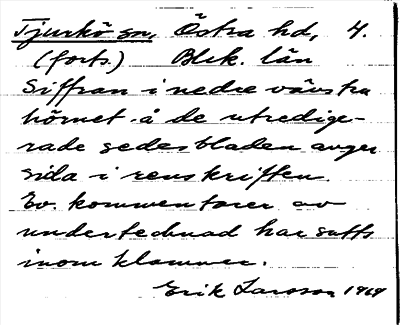 Tjurkö sn, Östra hd, 4.
(forts.) Blek. län
Siffran i nedre vänstra
hörnet å de utredige-
rade sedesbladen anger
sida i renskriften.
Ev. kommentarer av
undertecknad har satts
inom klammer.
Erik Larsson 1969